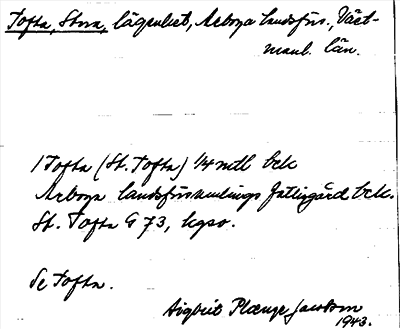 Tofta, Stora, lägenhet, Arboga landsförs., Väst-
manl. län.
1 Tofta (St. Tofta) 1/4 mtl bek
Arboga landsförsamlings fattiggård bek.
St. Tofta G 73, hgso.
Se Tofta.
Sigbrit Plænge Jacobson
1943.